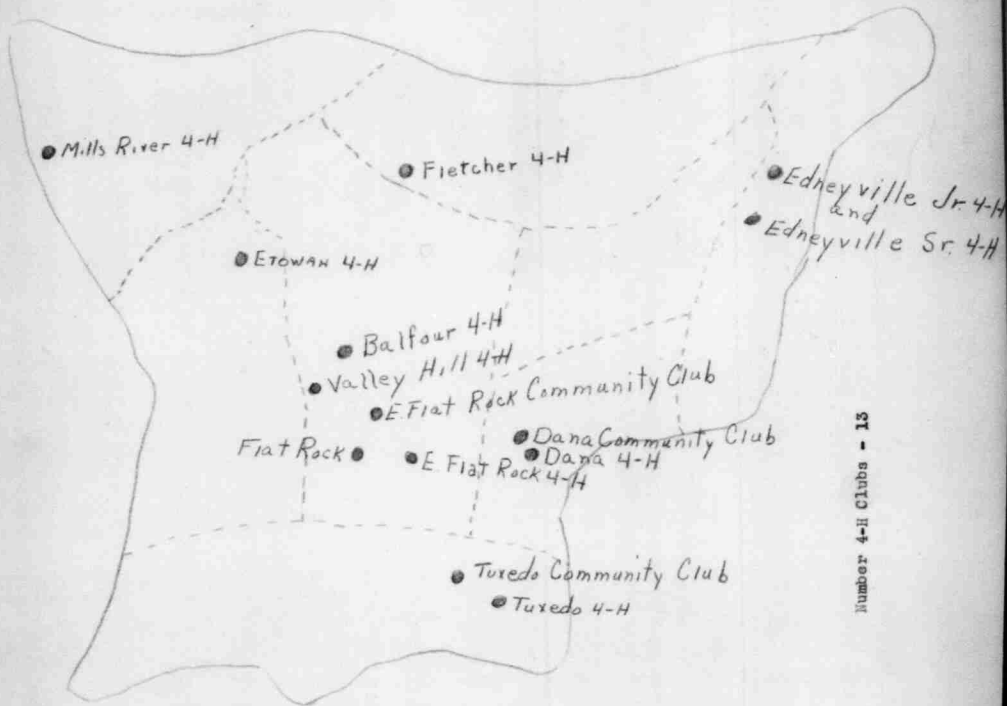 Mills River 4-H
Fletcher 4-H
Edneyville Jr. 4-H
and
Edneyville Sr. 4-H
Etowah 4-H
Balfour 4-H
Valley Hill 4-H
E. Flat Rock Community Club
Dana Community Club
Flat Rock
E. Flat Rock 4-H
Dana 4-H
Tuxedo Community Club
Tuxedo 4-H
Number 4-H Clubs - 13